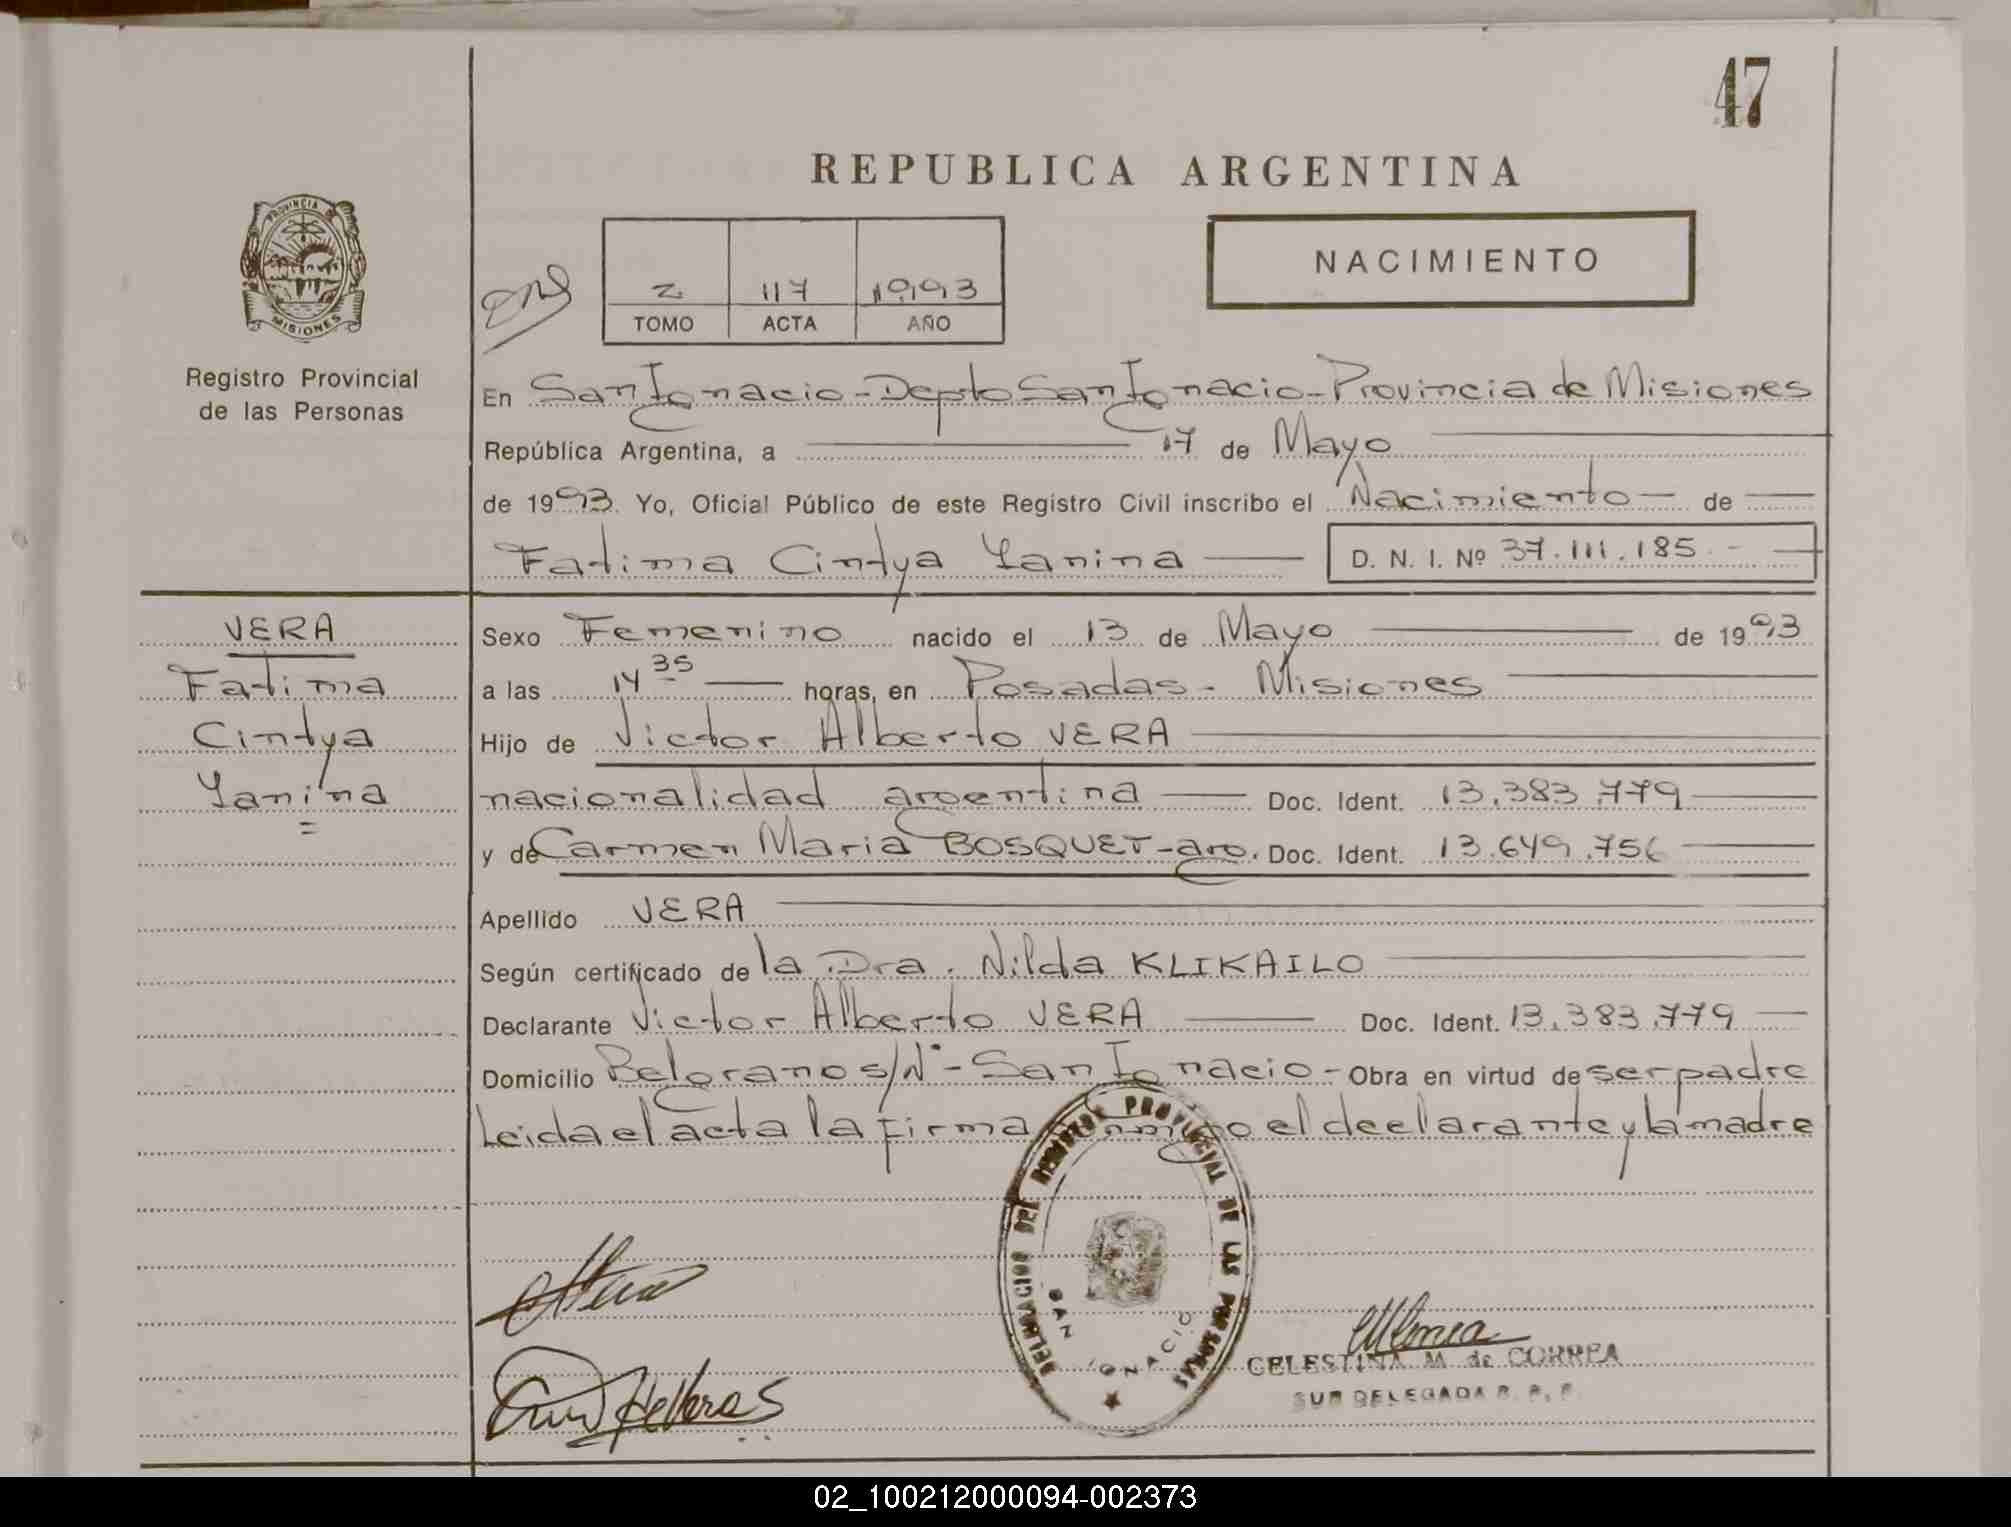 47
REPUBLICA ARGENTINA
PROVINCIA DE
MISIONES
Registro Provincial
de las Personas
NACIMIENTO
2 117 1993
TOMO ACTA AÑO
En San Ignacio - Depto San Ignacio - Provincia de Misiones
República Argentina, a 17 de Mayo
de 1993. Yo, Oficial Público de este Registro Civil inscribo el Nacimiento - de
Fatima Cintya Yanina D. N. I. Nº 37.111.185 -
VERA
Fatima
Cintya
Yanina
=
Sexo Femenino nacido el 13 de Mayo de 1993
a las 14 35 horas, en Posadas - Misiones
Hijo de Victor Alberto VERA
nacionalidad argentina Doc. Ident. 13.383.779
y de Carmen Maria BOSQUET - arg. Doc. Ident. 13.649.756
Apellido VERA
Según certificado de la Dra. Nilda KLIKAILO
Declarante Victor Alberto VERA Doc. Ident. 13.383.779
Domicilio Belgrano s/Nº - San Ignacio - Obra en virtud de ser padre
Leida el acta la firma conmigo el declarante y la madre
DELEGACION DEL REGISTRO PROVINCIAL DE LAS PERSONAS
SAN IGNACIO
CELESTINA M. de CORREA
SUB DELEGADA R. P. P.
02_100212000094-002373